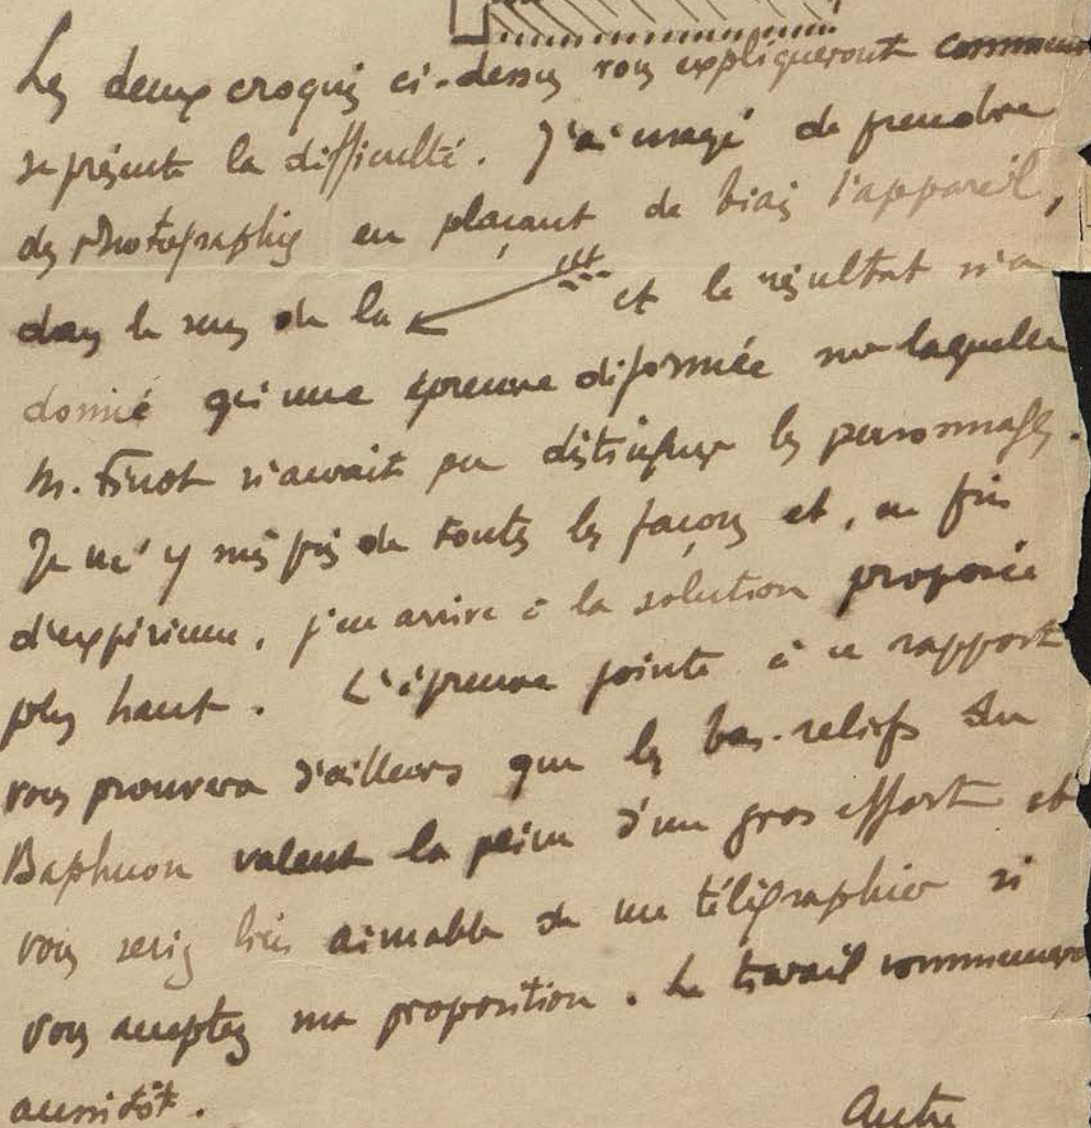 Les deux croquis ci-dessus vous expliqueront comment
se présente la difficulté. J'ai essayé de prendre
des photographies en plaçant de biais l'appareil,
dans le sens de la et le résultat n'a
donné qu'une épreuve déformée sur laquelle
M. Finot n'aurait pu distinguer les personnages.
Je m'y suis pris de toutes les façons et, en fin
d'expérience, j'en arrive à la solution proposée
plus haut. L'épreuve jointe à ce rapport
vous prouvera d'ailleurs que les bas-reliefs du
Baphuon valent la peine d'un gros effort et
vous seriez bien aimable de me télégraphier si
vous acceptez ma proposition. Le travail commencera
aussitôt.
Autre